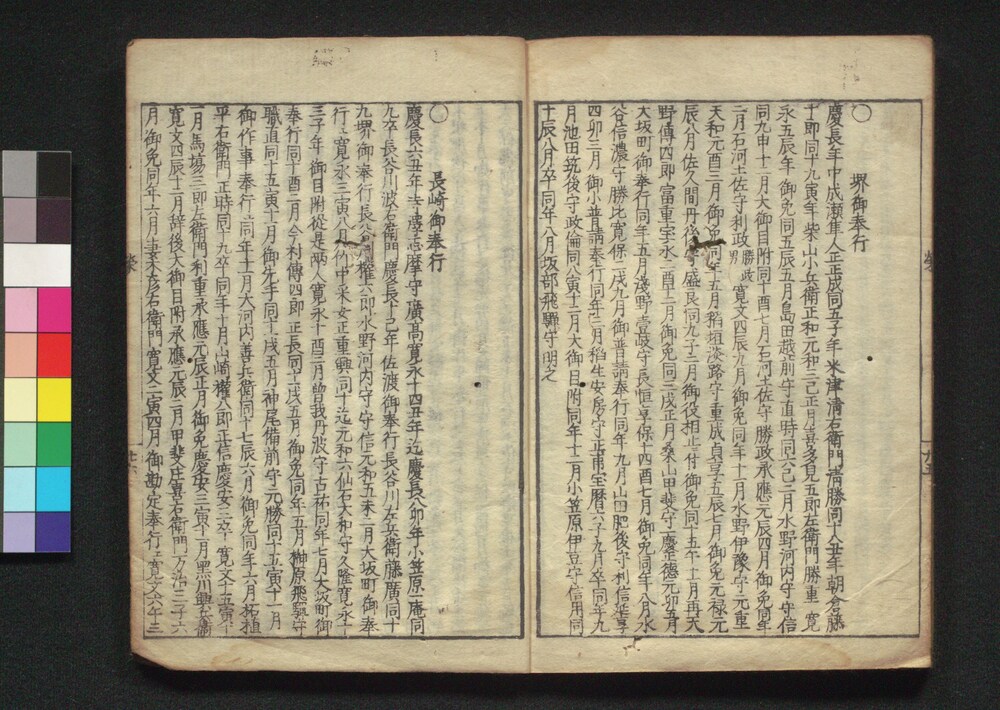 ○ 堺御奉行
慶長年中成瀬隼人正正成同五子年米津清右衛門清勝同十八丑年朝倉藤
十郎同十九寅年柴山小兵衛正和元和三巳正月喜多見五郎左衛門勝重寛
永五辰年御免同五辰五月島田越前守直時同六巳二月水野河内守守信
同九申十二月大御目附同十酉七月石河土佐守勝政承應元辰四月御免同年
二月石河土佐守利政勝政男寛文四辰九月御免同年十一月水野伊豫守元重
天和元酉三月御免同年五月稻垣淡路守重成貞享五辰七月御免元禄元
辰八月佐久間丹後守盛良同九子二月御役相止付御免同十五午十一月再天
野傳四郎富重宝永二酉十二月御免同三戌正月桑山甲斐守一慶正德元卯五月
大坂町御奉行同年五月淺野壹岐守長恒享保十四酉七月御免同年八月水
谷信濃守勝比寛保二戌九月御普請奉行同年九月山田肥後守利信延享
四卯三月御小普請奉行同年三月稻生安房守正甫宝暦六子九月卒同年九
月池田筑後守政倫同八寅十二月大御目附同年十二月小笠原伊豆守信用同
十辰八月卒同年八月坂部飛騨守明之
○ 長崎御奉行
慶長六丑年寺澤志摩守廣高寛永十四丑年迄慶長八卯年小笠原一庵同
九卒長谷川波右衛門慶長十己年佐渡御奉行長谷川左兵衛藤廣同十
九堺御奉行長谷川權六郎水野河内守守信元和五未二月大坂町御奉
行ヱ寛永三寅八月竹中采女正重興同十迄元和六仙石大和守久隆寛永十
三子年御目附從是兩人寛永十酉三月曽我丹波守古祐同年七月大坂町御
奉行同十酉二月今村傳四郎正長同十一戌五月御免同年五月榊原飛騨守
職直同十五寅十一月御先手同十一戌五月神尾備前守元勝同十五寅十一月
御作事奉行ヱ同年十一月大河内善兵衛同十七辰六月御免同年六月柘植
平右衛門正時同十九卒同年十月山崎權八郎正信慶安三卒寛文十五寅十
一月馬塲三郎左衛門利重承應元辰正月御免慶安三寅十一月黑川與兵衛
寛文四辰十二月辞後大御目附承應元辰二月甲斐庄喜右衛門万治三子六
月御免同年六月妻木彦右衛門寛文二寅四月御勘定奉行ヱ寛文六午三